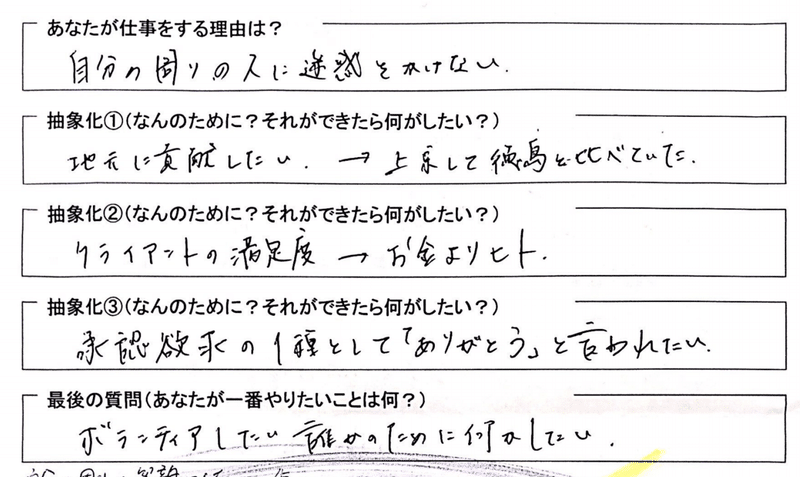 あなたが仕事をする理由は？
自分の周りの人に迷惑をかけない.
抽象化①(なんのために？それができたら何がしたい？)
地元に貢献したい. → 上京して徳島と比べていた.
抽象化②(なんのために？それができたら何がしたい？)
クライアントの満足度 → お金よりヒト.
抽象化③(なんのために？それができたら何がしたい？)
承認欲求の1種として「ありがとう」と言われたい.
最後の質問(あなたが一番やりたいことは何？)
ボランティアしたい 誰かのために何かしたい.